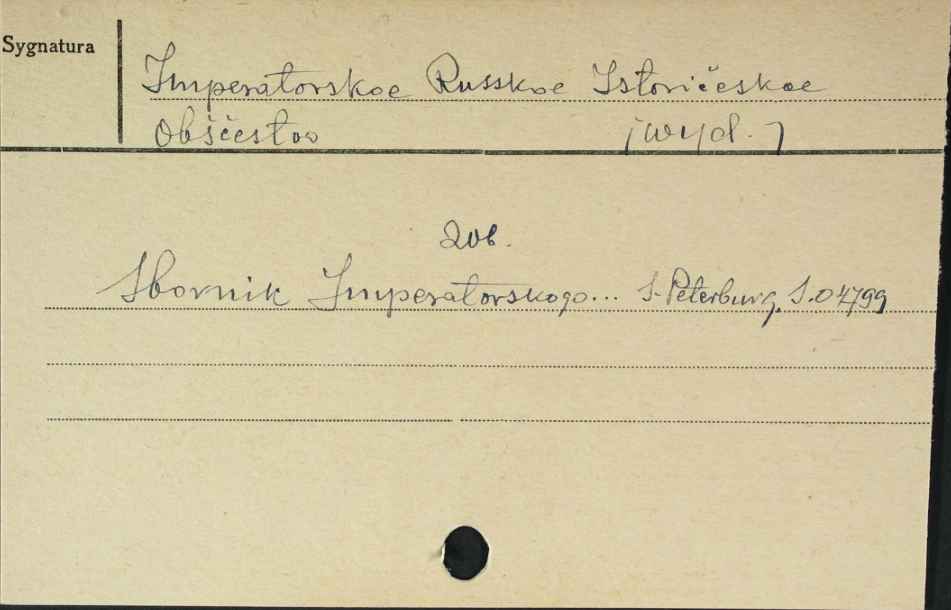 Sygnatura
Imperatorskoe Russkoe Istoričeskoe
Obščestvo [wyd.]
zob.
Sbornik Imperatorskogo... S-Peterburg, S.04799